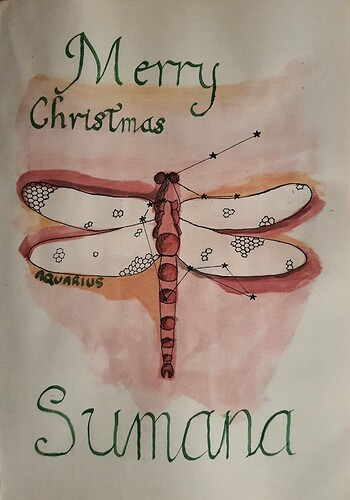 Merry
Christmas
AQUARIUS
Sumana